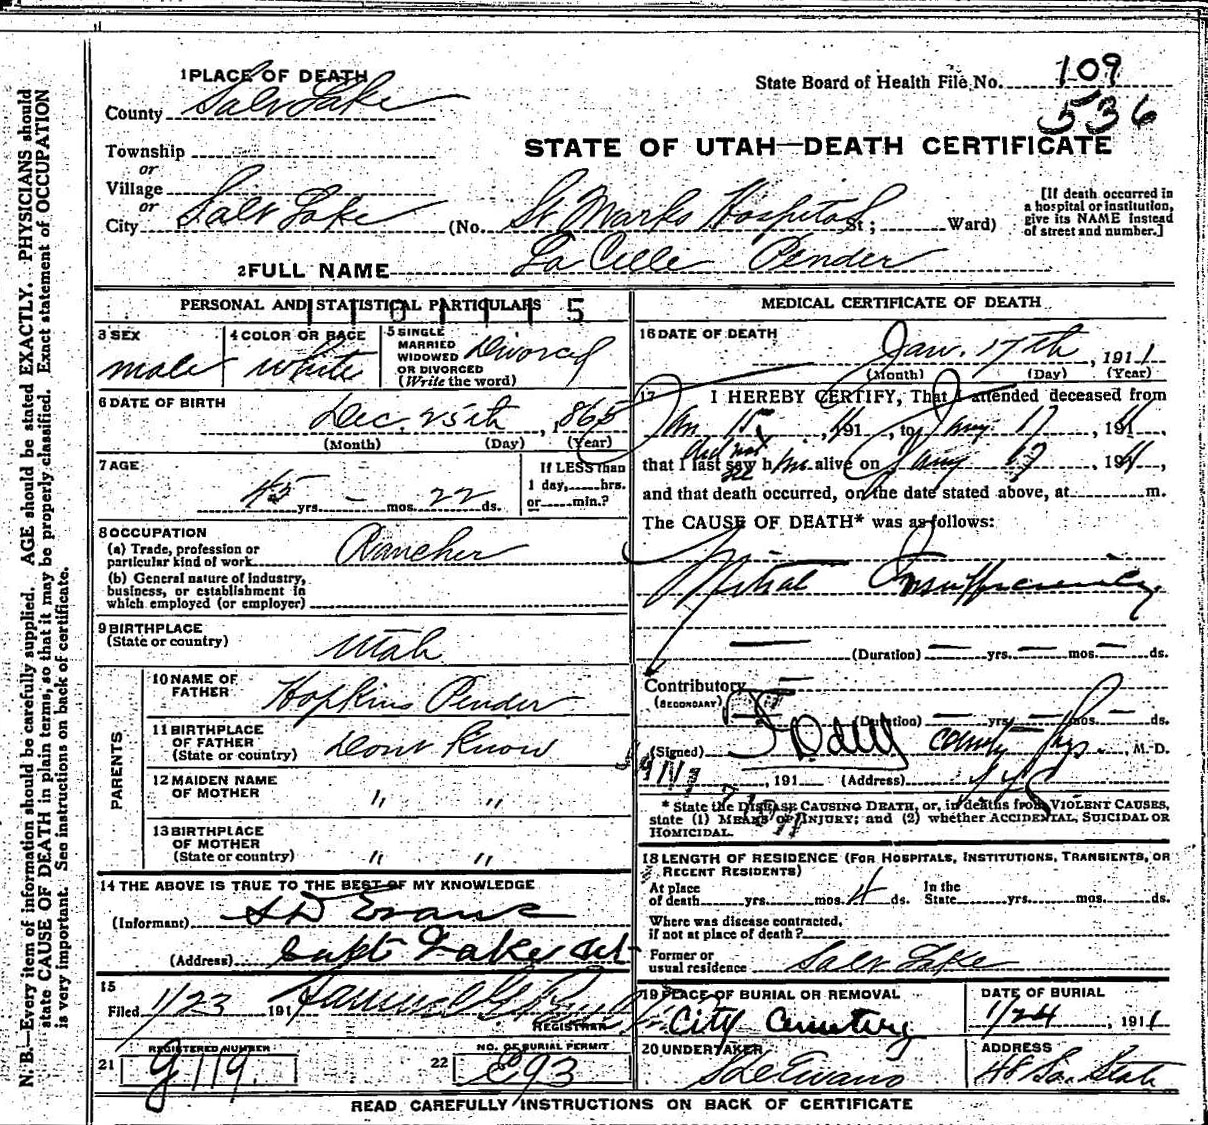 1 PLACE OF DEATH
County Salt Lake
State Board of Health File No. 109
536
STATE OF UTAH—DEATH CERTIFICATE
Township
or
Village
or
City Salt Lake (No. St Marks Hospital St; Ward)
[If death occurred in a hospital or institution, give its NAME instead of street and number.]
2 FULL NAME La Celle Pender
PERSONAL AND STATISTICAL PARTICULARS
3 SEX
male
4 COLOR OR RACE
white
5 SINGLE
MARRIED
WIDOWED
OR DIVORCED
(Write the word)
Divorced
6 DATE OF BIRTH
Dec. 25th, 1865
(Month) (Day) (Year)
7 AGE
45 yrs. - mos. 22 ds.
If LESS than
1 day, hrs.
or min.?
8 OCCUPATION
(a) Trade, profession or
particular kind of work Rancher
(b) General nature of industry,
business, or establishment in
which employed (or employer)
9 BIRTHPLACE
(State or country) Utah
PARENTS
10 NAME OF
FATHER Hopkins Pender
11 BIRTHPLACE
OF FATHER
(State or country) Dont Know
12 MAIDEN NAME
OF MOTHER " "
13 BIRTHPLACE
OF MOTHER
(State or country) " "
14 THE ABOVE IS TRUE TO THE BEST OF MY KNOWLEDGE
(Informant) S D Evans
(Address) Salt Lake Ut
15
Filed 1/23 191
REGISTRAR
21 REGISTERED NUMBER
G 119.
22 NO. OF BURIAL PERMIT
E 93
MEDICAL CERTIFICATE OF DEATH
16 DATE OF DEATH
Jan. 17th, 1911
(Month) (Day) (Year)
17 I HEREBY CERTIFY, That I attended deceased from
Jan 15, 1911, to Jany 17, 1911,
that I last saw him alive on Jany 17, 1911,
did not
see
and that death occurred, on the date stated above, at m.
The CAUSE OF DEATH* was as follows:
Mitral Insufficiency
(Duration) — yrs. — mos. — ds.
Contributory
(SECONDARY)
(Duration) — yrs. — mos. — ds.
(Signed) County Phys., M.D.
, 191 (Address)
* State the DISEASE CAUSING DEATH, or, in deaths from VIOLENT CAUSES,
state (1) MEANS OF INJURY; and (2) whether ACCIDENTAL, SUICIDAL OR
HOMICIDAL.
18 LENGTH OF RESIDENCE (FOR HOSPITALS, INSTITUTIONS, TRANSIENTS, OR
RECENT RESIDENTS)
At place
of death yrs. mos. 4 ds.
In the
State yrs. mos. ds.
Where was disease contracted,
if not at place of death?
Former or
usual residence Salt Lake
19 PLACE OF BURIAL OR REMOVAL
City Cemetery
DATE OF BURIAL
1/24, 1911
20 UNDERTAKER
S D Evans
ADDRESS
48 So. State
READ CAREFULLY INSTRUCTIONS ON BACK OF CERTIFICATE
N. B.—Every item of information should be carefully supplied. AGE should be stated EXACTLY. PHYSICIANS should
state CAUSE OF DEATH in plain terms, so that it may be properly classified. Exact statement of OCCUPATION
is very important. See instructions on back of certificate.